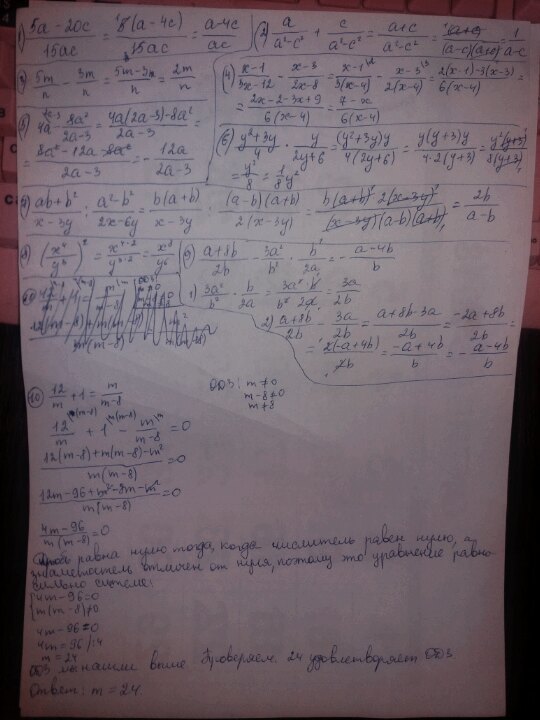 1) (5a-20c)/(15ac) = (5(a-4c))/(15ac) = (a-4c)/(ac)
2) a/(a²-c²) + c/(a²-c²) = (a+c)/(a²-c²) = (a+c)/((a-c)(a+c)) = 1/(a-c)
3) 5m/n - 3m/n = (5m-3m)/n = 2m/n
4) (x-1)/(3x-12) - (x-3)/(2x-8) = (x-1)/(3(x-4)) - (x-3)/(2(x-4)) = (2(x-1)-3(x-3))/(6(x-4)) =
= (2x-2-3x+9)/(6(x-4)) = (7-x)/(6(x-4))
5) 4a - 8a²/(2a-3) = (4a(2a-3)-8a²)/(2a-3) =
= (8a²-12a-8a²)/(2a-3) = -12a/(2a-3)
6) (y²+3y)/4 · y/(2y+6) = ((y²+3y)y)/(4(2y+6)) = (y(y+3)y)/(4·2(y+3)) = (y²(y+3))/(8(y+3)) =
= y²/8 = 1/8 y²
(ab+b²)/(x-3y) : (a²-b²)/(2x-6y) = (b(a+b))/(x-3y) : ((a-b)(a+b))/(2(x-3y)) = (b(a+b) 2(x-3y))/((x-3y)(a-b)(a+b)) = 2b/(a-b)
8) (x⁴/y³)² = x^(4·2)/y^(3·2) = x⁸/y⁶
9) (a+8b)/2b - 3a²/b² · b/2a = -(a-4b)/b
1) 3a²/b² · b/2a = (3a²·b)/(b²·2a) = 3a/2b
2) (a+8b)/2b - 3a/2b = (a+8b-3a)/2b = (-2a+8b)/2b =
= (2(-a+4b))/2b = (-a+4b)/b = -(a-4b)/b
10) 12/m + 1 = m/(m-8)
ОДЗ: m≠0
m-8≠0
m≠8
12/m + 1 - m/(m-8) = 0
(12(m-8)+m(m-8)-m²)/(m(m-8)) = 0
(12m-96+m²-8m-m²)/(m(m-8)) = 0
(4m-96)/(m(m-8)) = 0
Дробь равна нулю тогда, когда числитель равен нулю, а
знаменатель отличен от нуля, поэтому это уравнение равно-
сильно системе:
{4m-96=0
{m(m-8)≠0
4m-96=0
4m=96 /:4
m=24
ОДЗ мы нашли выше. Проверяем. 24 удовлетворяет ОДЗ
Ответ: m=24.